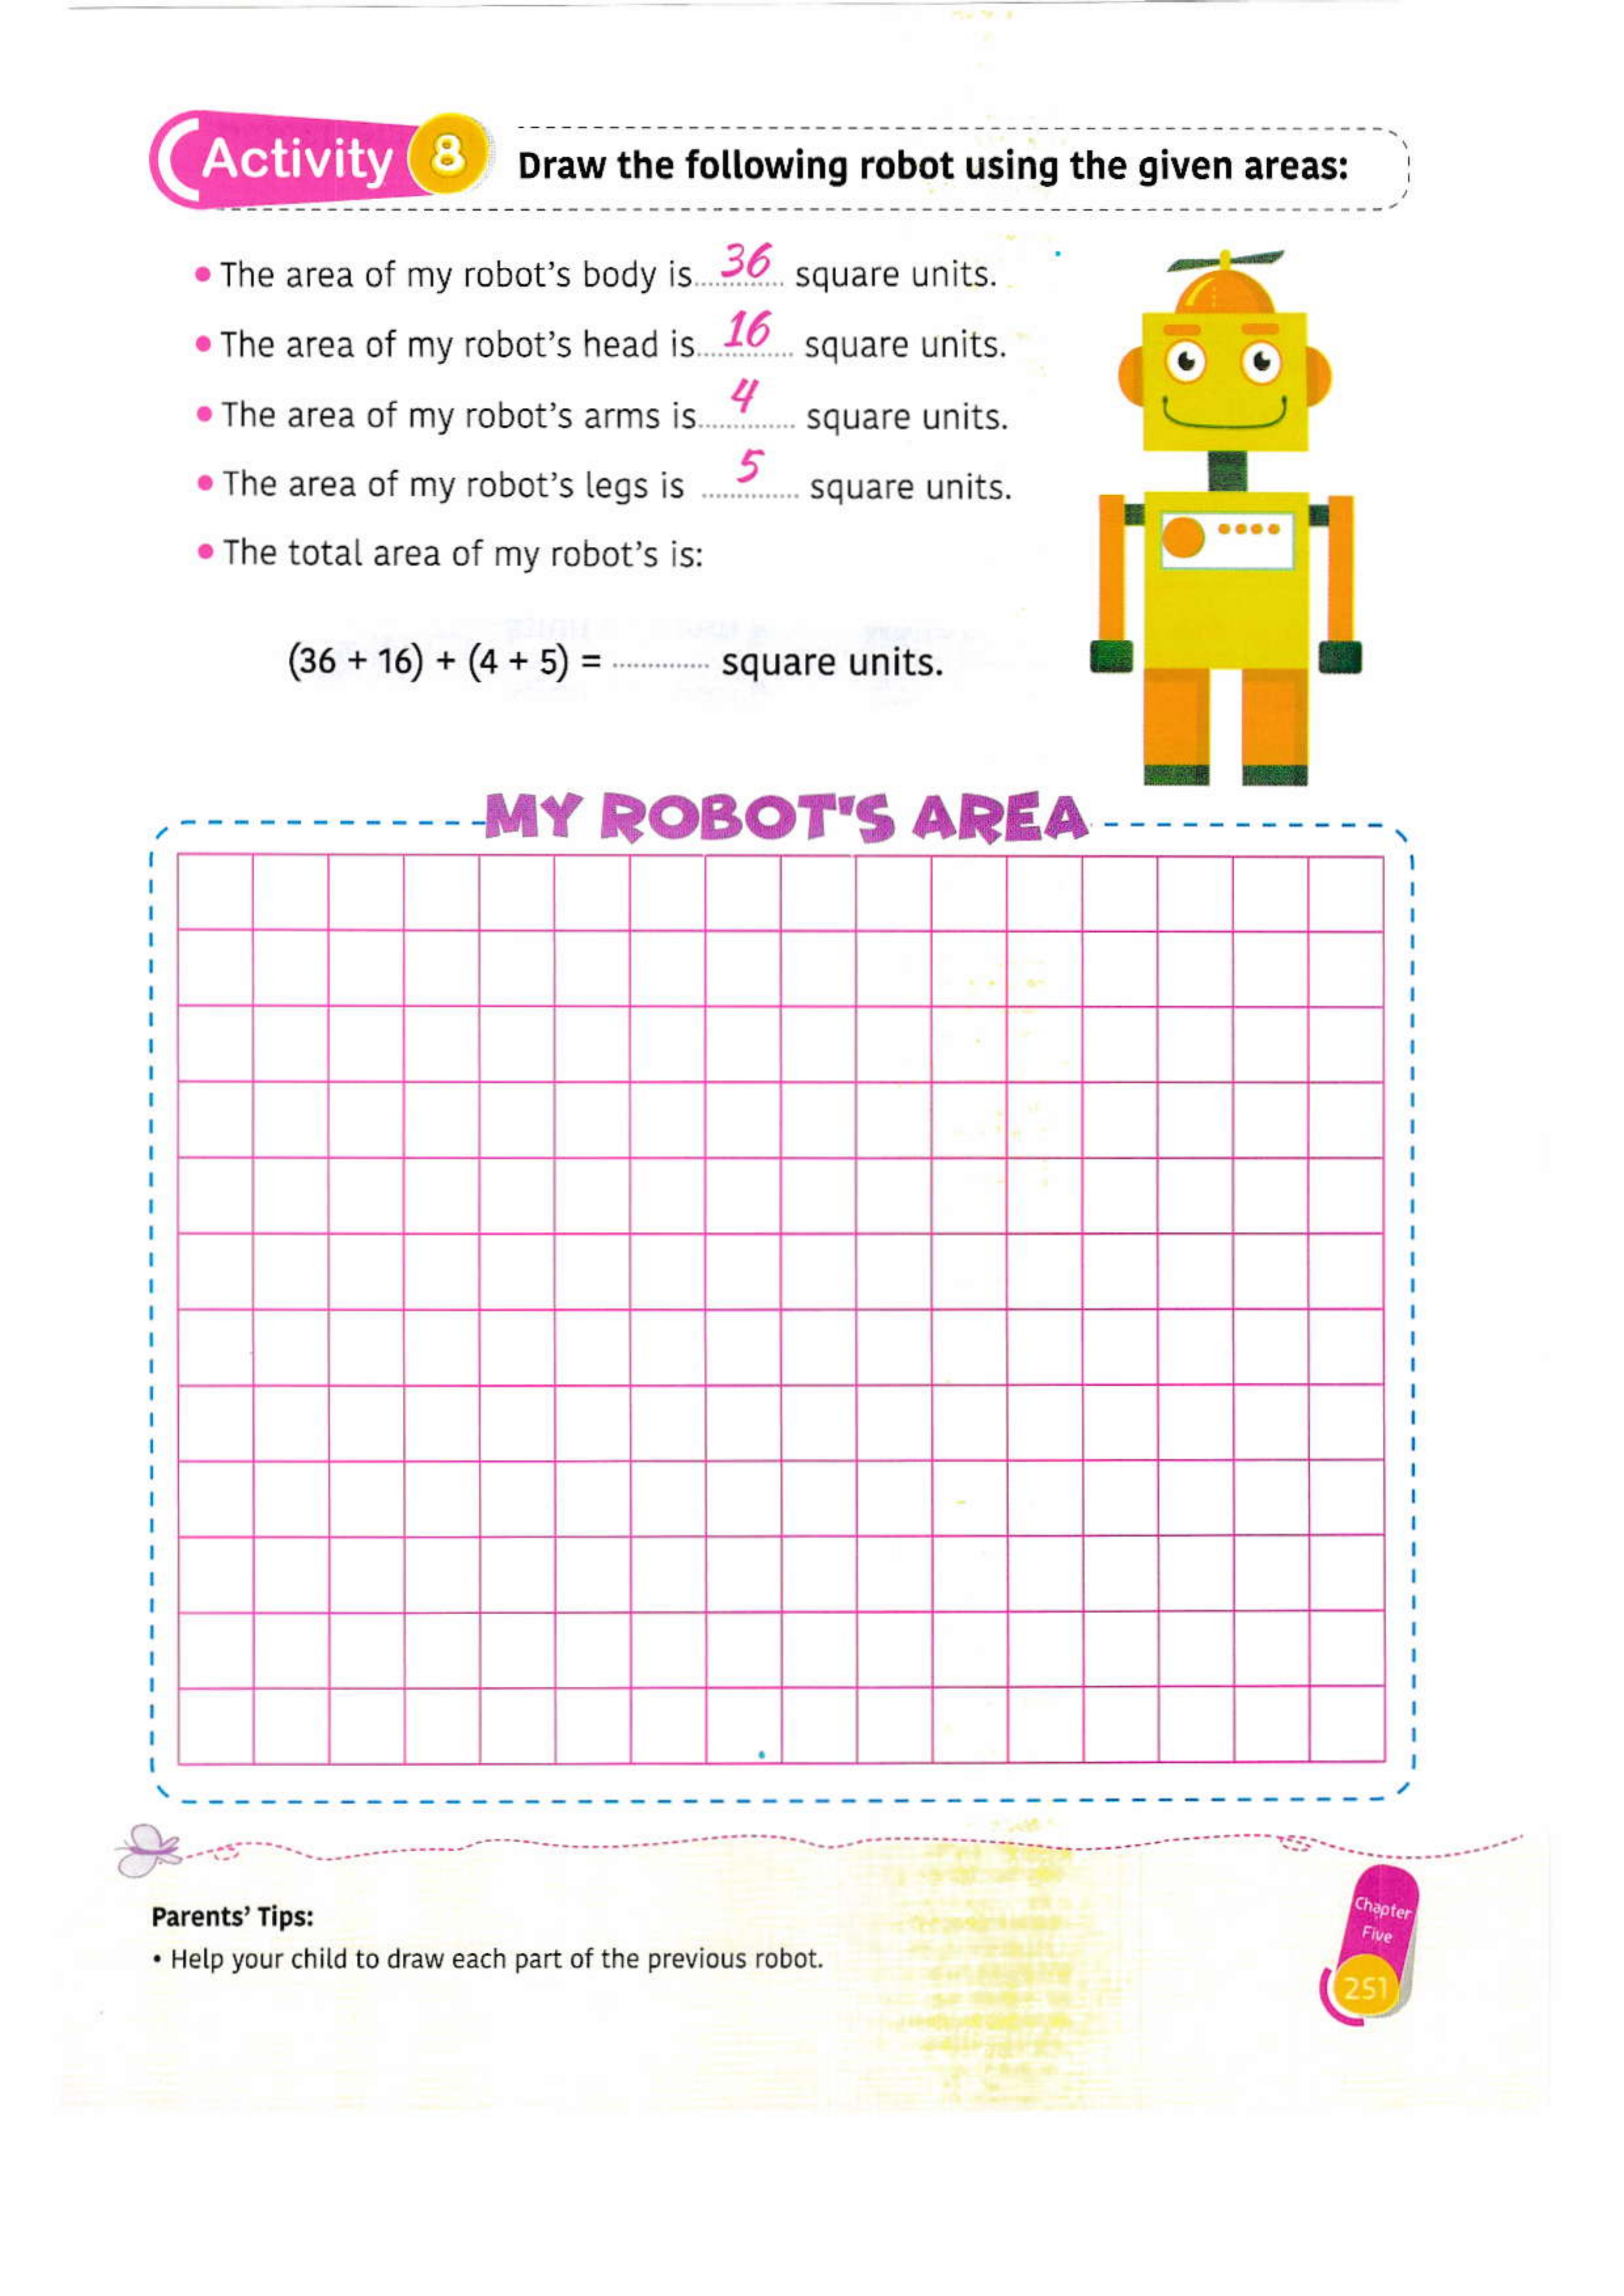 Activity 8 Draw the following robot using the given areas:
• The area of my robot's body is............36 square units.
• The area of my robot's head is............16 square units.
• The area of my robot's arms is............4 square units.
• The area of my robot's legs is ............5 square units.
• The total area of my robot's is:
(36 + 16) + (4 + 5) = ............ square units.
MY ROBOT'S AREA
Parents' Tips:
• Help your child to draw each part of the previous robot.
Chapter
Five
251